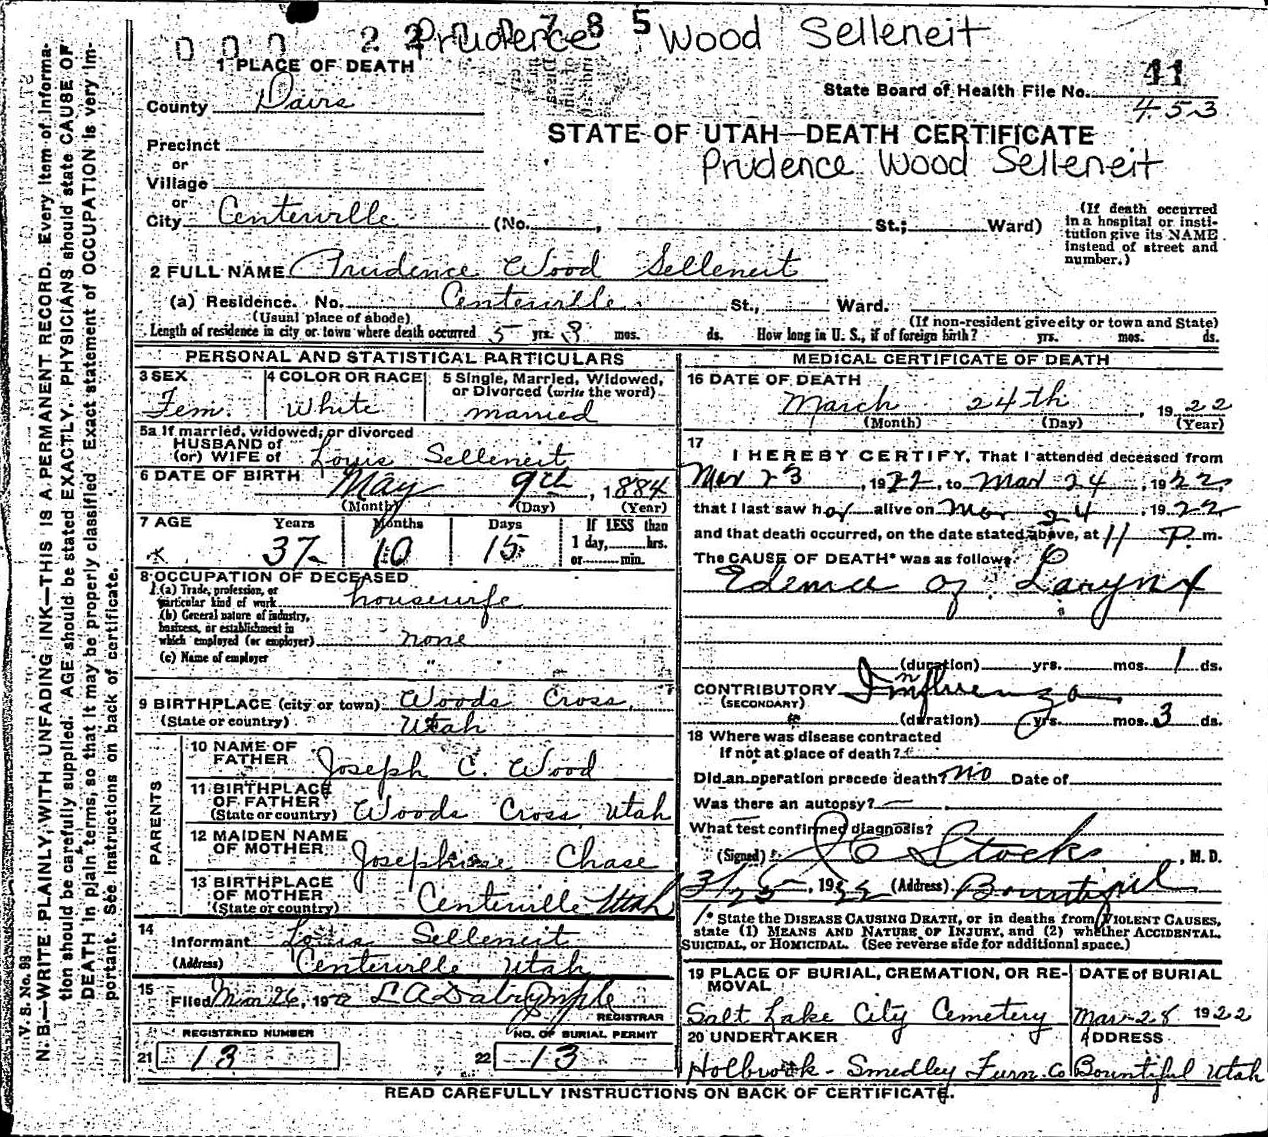 000 22 785 Prudence Wood Selleneit
1 PLACE OF DEATH
41
County Davis
State Board of Health File No.
453
STATE OF UTAH—DEATH CERTIFICATE
Prudence Wood Selleneit
Precinct
or
Village
or
City Centerville (No. , St.; Ward)
(If death occurred in a hospital or insti-
tution give its NAME
instead of street and
number.)
2 FULL NAME Prudence Wood Selleneit
(a) Residence. No. Centerville St., Ward.
(Usual place of abode)
(If non-resident give city or town and State)
Length of residence in city or town where death occurred 5 yrs. 3 mos. ds. How long in U. S., if of foreign birth? yrs. mos. ds.
PERSONAL AND STATISTICAL PARTICULARS
3 SEX
Fem.
4 COLOR OR RACE
White
5 Single, Married, Widowed,
or Divorced (write the word)
married
5a If married, widowed, or divorced
HUSBAND of
(or) WIFE of Louis Selleneit
6 DATE OF BIRTH May 9th, 1884
(Month) (Day) (Year)
7 AGE Years Months Days If LESS than
1 day, hrs.
or min.
37 10 15
8 OCCUPATION OF DECEASED
(a) Trade, profession, or
particular kind of work housewife
(b) General nature of industry,
business, or establishment in
which employed (or employer) none
(c) Name of employer "
9 BIRTHPLACE (city or town) Woods Cross,
(State or country) Utah
PARENTS
10 NAME OF
FATHER Joseph C. Wood
11 BIRTHPLACE
OF FATHER
(State or country) Woods Cross, Utah
12 MAIDEN NAME
OF MOTHER Josephine Chase
13 BIRTHPLACE
OF MOTHER
(State or country) Centerville Utah
14
Informant Louis Selleneit
(Address) Centerville Utah
15
Filed Mar 26, 1922 L A Dalrymple
REGISTRAR
REGISTERED NUMBER NO. OF BURIAL PERMIT
21 13 22 13
MEDICAL CERTIFICATE OF DEATH
16 DATE OF DEATH
March 24th, 1922
(Month) (Day) (Year)
17
I HEREBY CERTIFY, That I attended deceased from
Mar 23, 1922, to Mar 24, 1922,
that I last saw her alive on Mar 24, 1922
and that death occurred, on the date stated above, at 11 P. m.
The CAUSE OF DEATH* was as follows:
Edema of Larynx
(duration) yrs. mos. 1 ds.
CONTRIBUTORY Influenza
(SECONDARY)
(duration) yrs. mos. 3 ds.
18 Where was disease contracted
if not at place of death?
Did an operation precede death? no Date of
Was there an autopsy?
What test confirmed diagnosis?
(Signed) Stocks, M. D.
3/25, 1922 (Address) Bountiful
* State the DISEASE CAUSING DEATH, or in deaths from VIOLENT CAUSES,
state (1) MEANS AND NATURE OF INJURY, and (2) whether ACCIDENTAL,
SUICIDAL, or HOMICIDAL. (See reverse side for additional space.)
19 PLACE OF BURIAL, CREMATION, OR RE-
MOVAL
Salt Lake City Cemetery
DATE of BURIAL
Mar 28 1922
20 UNDERTAKER
Holbrook - Smedley Furn. Co
ADDRESS
Bountiful Utah
READ CAREFULLY INSTRUCTIONS ON BACK OF CERTIFICATE.
V. S. No. 98
N. B.—WRITE PLAINLY, WITH UNFADING INK—THIS IS A PERMANENT RECORD. Every item of informa-
tion should be carefully supplied. AGE should be stated EXACTLY. PHYSICIANS should state CAUSE OF
DEATH in plain terms, so that it may be properly classified. Exact statement of OCCUPATION is very im-
portant. See instructions on back of certificate.